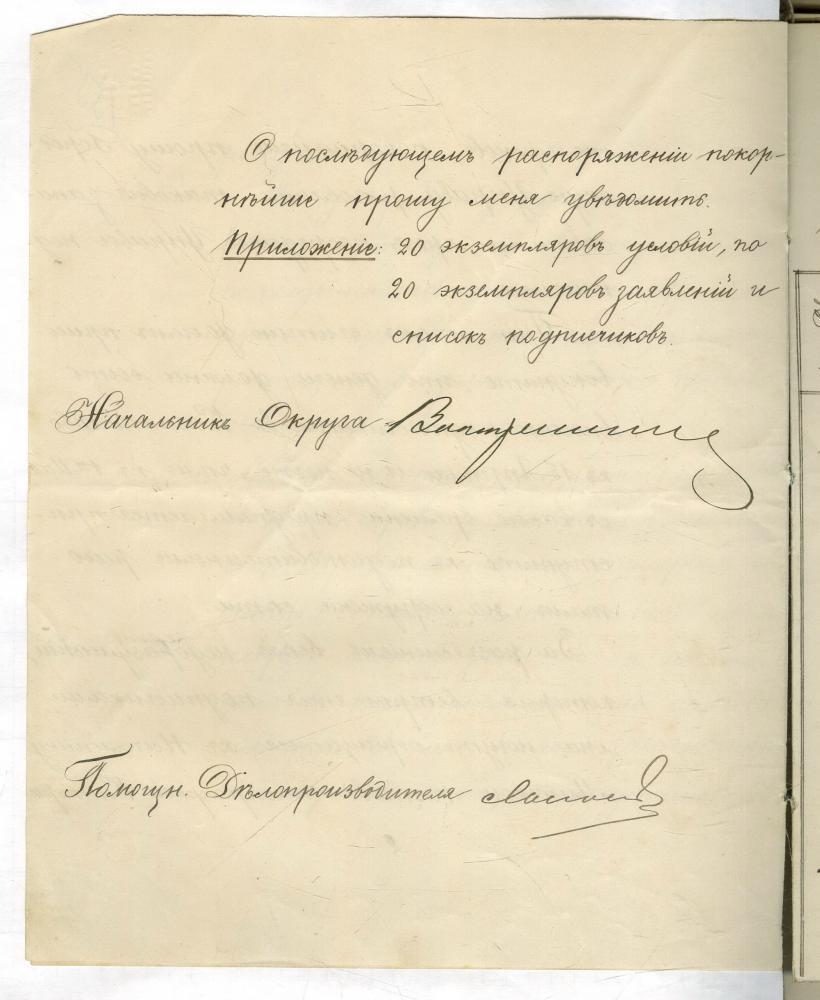 О послѣдующемъ распоряженіи покор-
нѣйше прошу меня увѣдомить.
Приложеніе: 20 экземпляровъ условій, по
20 экземпляровъ заявленій и
списокъ подписчиковъ.
Начальникъ Округа
Помощн. Дѣлопроизводителя